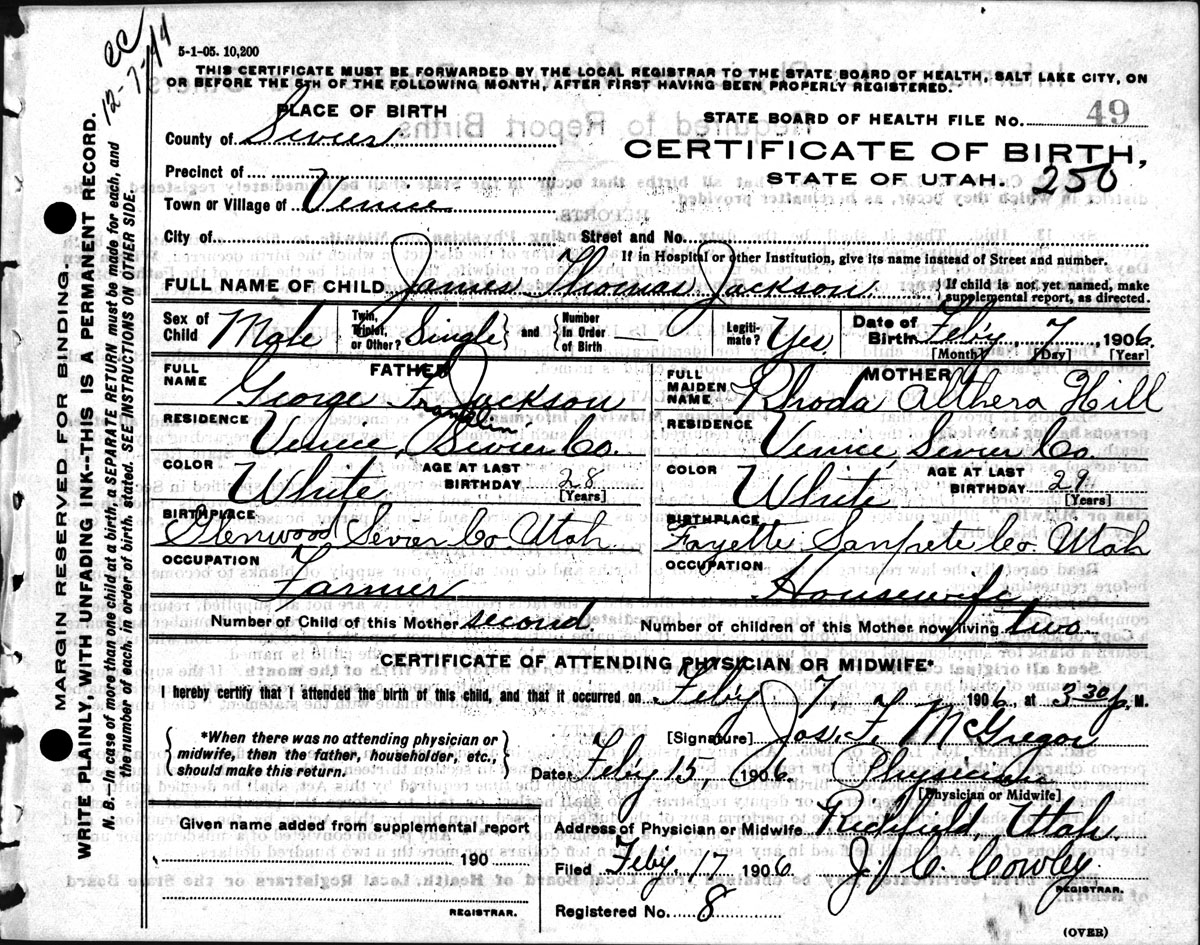 ec
12-7-44
5-1-05. 10,200
THIS CERTIFICATE MUST BE FORWARDED BY THE LOCAL REGISTRAR TO THE STATE BOARD OF HEALTH, SALT LAKE CITY, ON
OR BEFORE THE 5TH OF THE FOLLOWING MONTH, AFTER FIRST HAVING BEEN PROPERLY REGISTERED.
PLACE OF BIRTH
STATE BOARD OF HEALTH FILE NO. 49
County of Sevier
CERTIFICATE OF BIRTH,
Precinct of
STATE OF UTAH. 250
Town or Village of Venice
City of Street and No.
If in Hospital or other Institution, give its name instead of Street and number.
FULL NAME OF CHILD James Thomas Jackson { If child is not yet named, make supplemental report, as directed.
Sex of Child Male Twin, Triplet, or Other? Single } and { Number in Order of Birth — Legiti-mate? Yes. Date of Birth Feb'y, 7, 1906.
[Month] [Day] [Year]
FATHER MOTHER
FULL NAME George Franklin Jackson FULL MAIDEN NAME Rhoda Althera Hill
RESIDENCE Venice, Sevier Co. RESIDENCE Venice, Sevier Co.
COLOR White AGE AT LAST BIRTHDAY 28 [Years] COLOR White AGE AT LAST BIRTHDAY 29 [Years]
BIRTHPLACE Glenwood Sevier Co. Utah BIRTHPLACE Fayette Sanpete Co. Utah
OCCUPATION Farmer OCCUPATION Housewife
Number of Child of this Mother second Number of children of this Mother now living two
CERTIFICATE OF ATTENDING PHYSICIAN OR MIDWIFE*
I hereby certify that I attended the birth of this child, and that it occurred on Feb'y 7, 1906, at 3 30 p. M.
{ *When there was no attending physician or midwife, then the father, householder, etc., should make this return. }
[Signature] Jos. F. McGregor
Date Feb'y 15, 1906. Physician
[Physician or Midwife]
Given name added from supplemental report
190
REGISTRAR.
Address of Physician or Midwife Richfield, Utah
Filed Feby, 17 1906 J. C. Cowley
REGISTRAR.
Registered No. 8
(OVER)
MARGIN RESERVED FOR BINDING.
WRITE PLAINLY, WITH UNFADING INK--THIS IS A PERMANENT RECORD.
N. B.—In case of more than one child at a birth, a SEPARATE RETURN must be made for each, and
the number of each, in order of birth, stated. SEE INSTRUCTIONS ON OTHER SIDE.